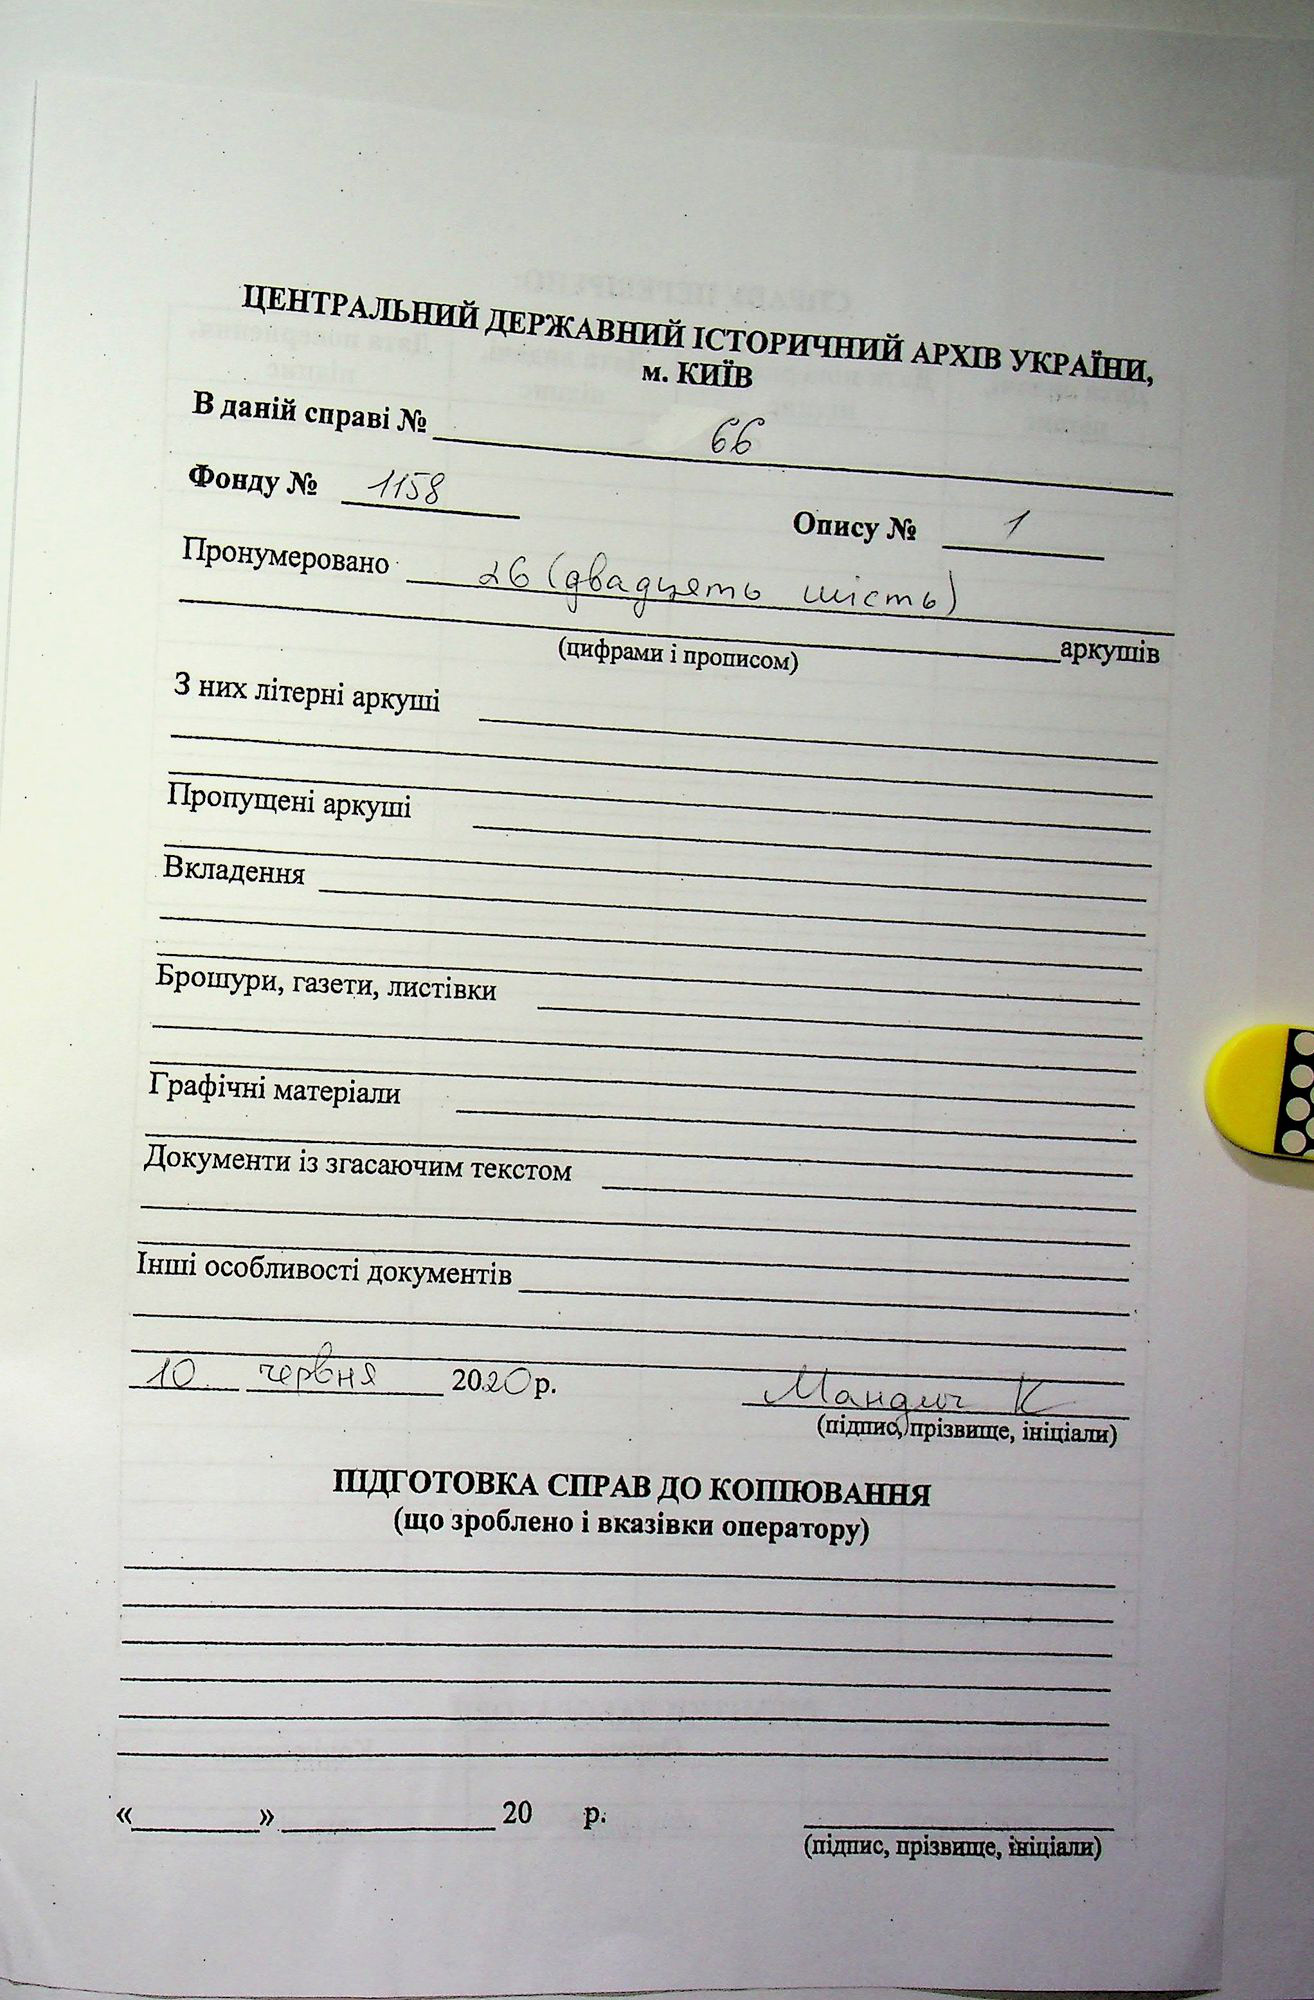 ЦЕНТРАЛЬНИЙ ДЕРЖАВНИЙ ІСТОРИЧНИЙ АРХІВ УКРАЇНИ,
м. КИЇВ
В даній справі № 66
Фонду № 1158 Опису № 1
Пронумеровано 26 (двадцять шість)
аркушів
(цифрами і прописом)
З них літерні аркуші
Пропущені аркуші
Вкладення
Брошури, газети, листівки
Графічні матеріали
Документи із згасаючим текстом
Інші особливості документів
10 червня 2020 р. Мандич К
(підпис, прізвище, ініціали)
ПІДГОТОВКА СПРАВ ДО КОПІЮВАННЯ
(що зроблено і вказівки оператору)
« » 20 р.
(підпис, прізвище, ініціали)